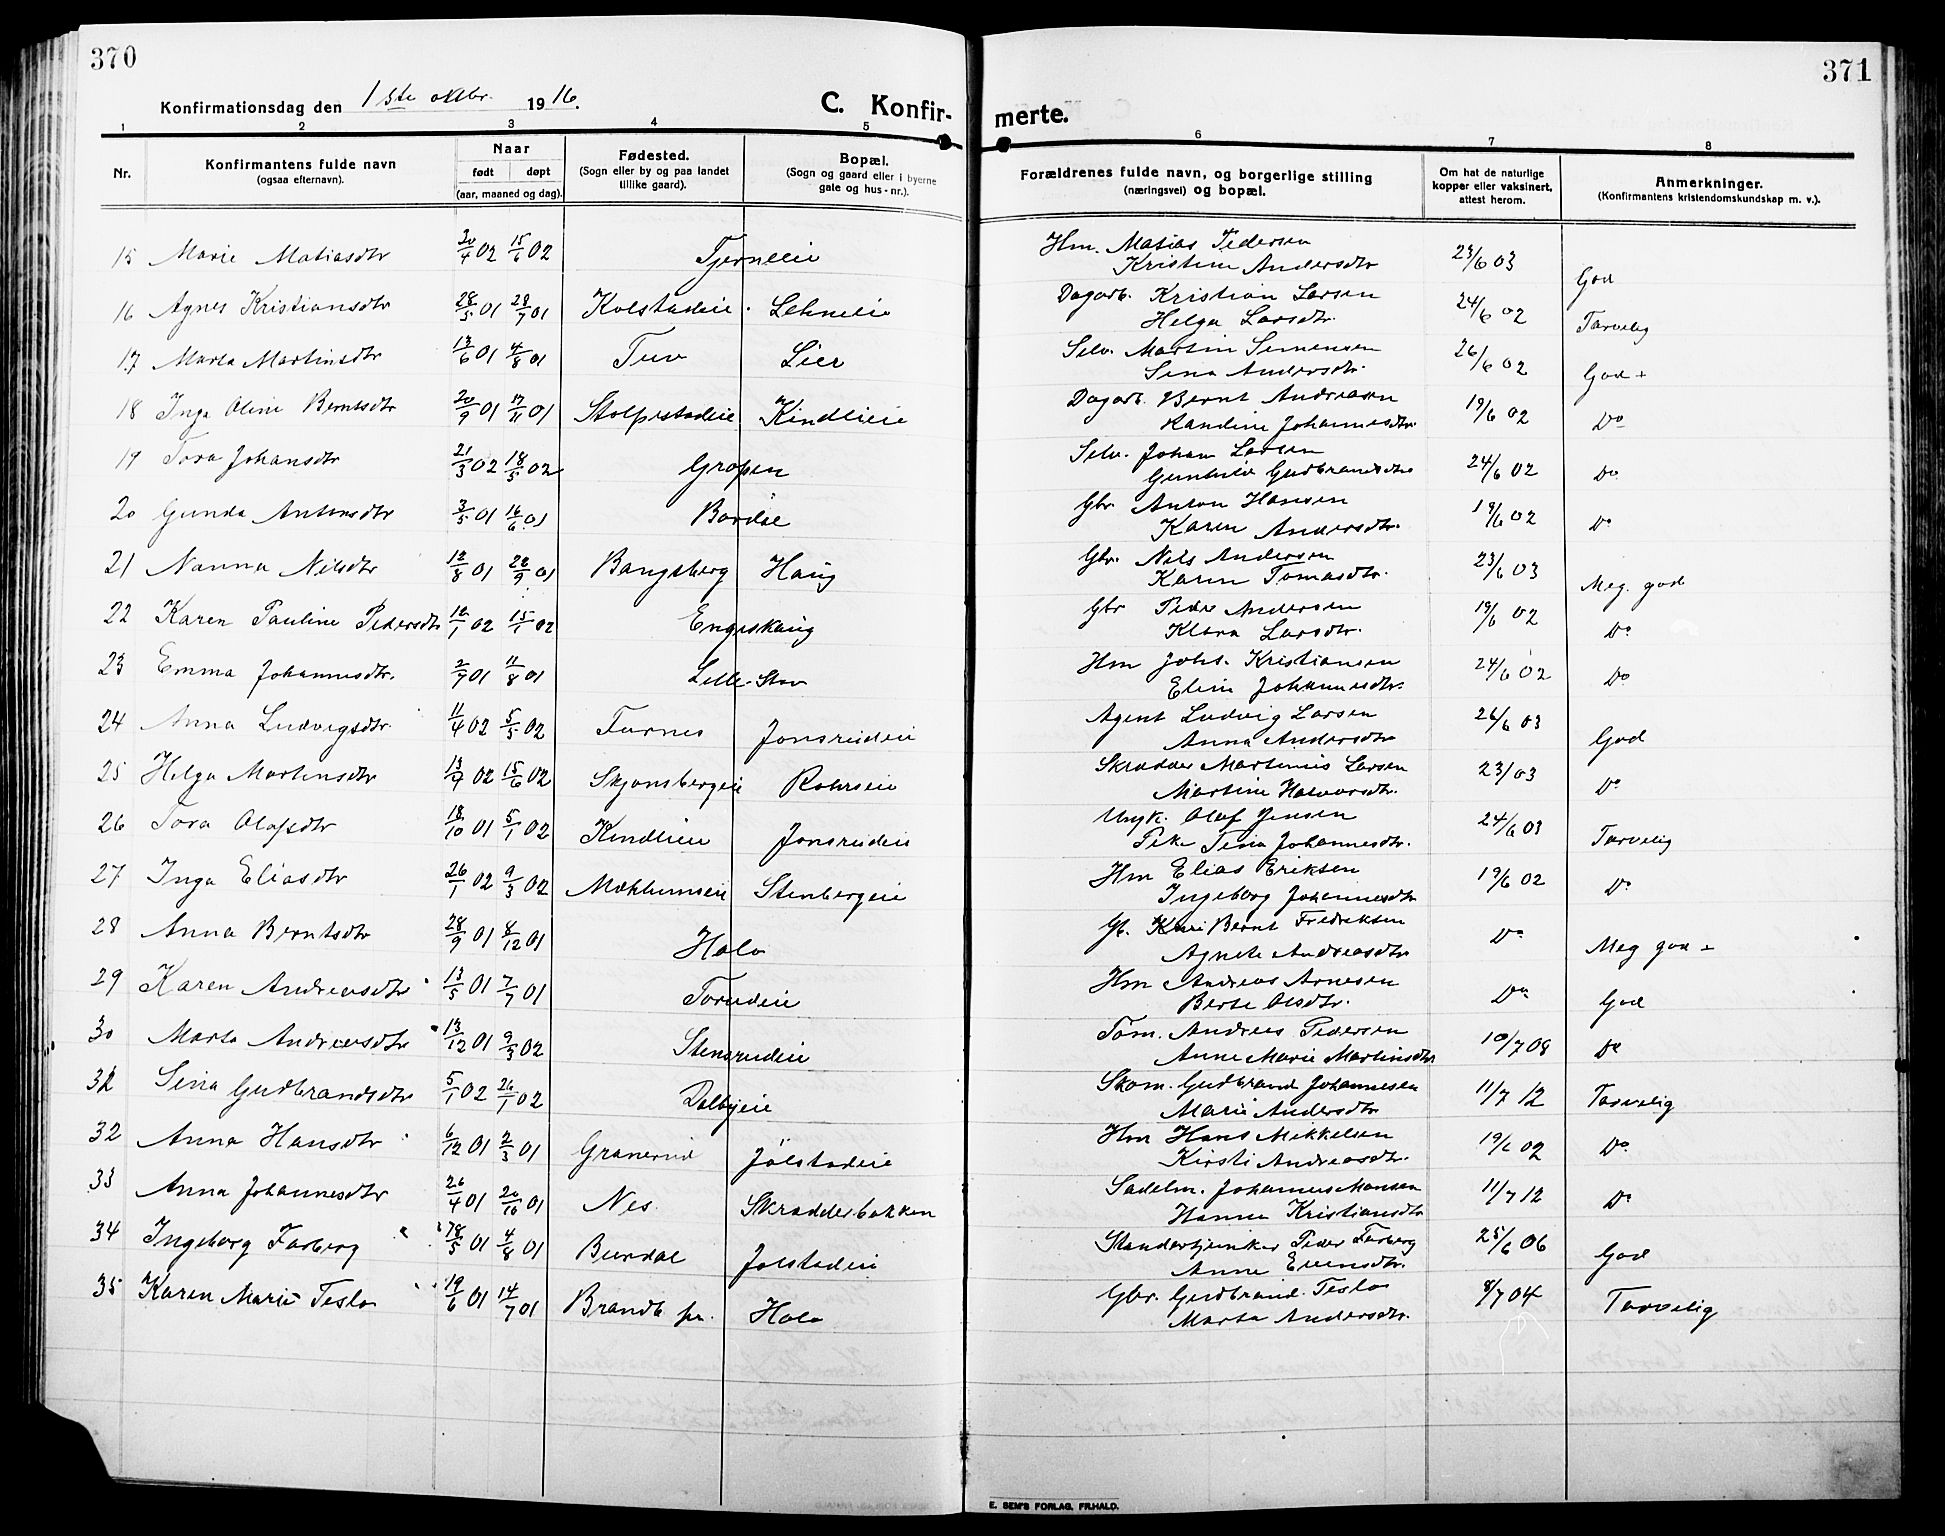 370
Konfirmationsdag den 1ste oktbr. 1916.
C. Konfir-
1 2 3 4 5
Nr.
Konfirmantens fulde navn
(ogsaa efternavn).
Naar
født døpt
(aar, maaned og dag).
Fødested.
(Sogn eller by og paa landet
tillike gaard).
Bopæl.
(Sogn og gaard eller i byerne
gate og hus-nr.).
15 Marie Matiasdtr 20/4 02 15/6 02 Tjerneeie
16 Agnes Kristiansdtr 28/5 01 28/7 01 Kolstadeie Lehneeie
17 Marta Martinsdtr 13/6 01 4/8 01 Tuv Lier
18 Inga Oline Berntsdtr 20/9 01 17/11 01 Stolpestadeie Kindlieie
19 Tora Johansdtr 21/3 02 18/5 02 Gropen
20 Gunda Antonsdtr 3/5 01 16/6 01
21 Nanna Nilsdtr 12/8 01 28/9 01 Bangsberg Haug
22 Karen Pauline Pedersdtr 10/1 02 15/1 02 Engeskaug
23 Emma Johannesdtr. 2/7 01 11/8 01 Lille-Stav
24 Anna Ludvigsdtr 11/4 02 5/5 02 Furnes Jonsrudeie
25 Helga Martinsdtr 02 15/6 02 Skjønsbergeie Rohrseie
26 Tora Olafsdtr 18/10 01 5/1 02 Kindlieie Jonsrudeie
27 Inga Eliasdtr 26/1 02 9/3 02 Mæhlumseie Stenbergeie
28 Anna Berntsdtr 28/9 01 8/12 01 Holo
29 Karen Andreasdtr 13/5 01 7/7 01 Torudeie
30 Marta Andreasdtr 13/12 01 9/3 02 Stensrudeie
31 Sina Gudbrandsdtr 5/1 02 26/1 02 Dalbyeie
32 Anna Hansdtr 6/12 01 2/3 01 Granerud Jølstadeie
33 Anna Johannesdtr 26/4 01 20/10 01 Nes. Skrædderbakken
34 Ingeborg Farberg 5 01 4/8 01 Jølstadeie
35 Karen Marie Teslo 19/6 01 14/7 01 Brandb. pr. Holo
371
merte.
6 7 8
Forældrenes fulde navn, og borgerlige stilling
(næringsvei) og bopæl.
Om hat de naturlige
kopper eller vaksinert,
attest herom.
Anmerkninger.
(Konfirmantens kristendomskundskap m. v.).
Hm. Matias Pedersen
Kristine Andersdtr 23/6 03 God
Dagarb. Kristian Larsen
Helga Larsdtr. 24/6 02 Tarvelig
Selv. Martin Simensen
Sina Andersdtr. 26/6 02 God +
Dagarb. Bernt Andreasen
Randine Johannesdtr. 19/6 02 Do
Selv. Johan Larsen
Gunhild Gudbrandsdtr 24/6 02 Do
Gbr. Anton Hansen
Karen Andersdtr. 19/6 02 Do
Gbr. Nils Andersen
Karen Tomasdtr. 23/6 03 Meg. god
Gbr Peder Andersen
Klara Larsdtr. 19/6 02 Do
Hm Johs. Kristiansen
Elin Johannesdtr. 24/6 02 Do
Agent Ludvig Larsen
Anna Andersdtr 26/6 03 God
Skrædder Martinius Larsen
Martine Halvorsdtr. 23/ 03 Do
Ungk. Olaf Jensen
Pike Tina Johannesdtr. 24/6 03 Tarvelig
Hm Elias Eriksen
Ingeborg Johannesdtr 19/6 02 Do
Bernt Fredriksen
Agnete Andreasdtr Do Meg god +
Hm Andreas Arnesen
Berte Olsdtr. Do God
Tøm. Andreas Pedersen
Anne Marie Martinsdtr 10/7 08 Do
Skom. Gudbrand Johannesen
Marie Andersdtr 11/7 12 Tarvelig
Hm Hans Mikkelsen
Kirsti Andreasdtr. 19/6 02 Do
Sadelm. Johannes Hansen
Hanna Kristiansdtr 11/7 12 Do
Peder Farberg
Anne Evensdtr. 25/6 06 God
Gbr. Gudbrand Teslo
Marta Andersdtr. 8/7 04 Tarvelig
E. SEM'S FORLAG, FR.HALD.